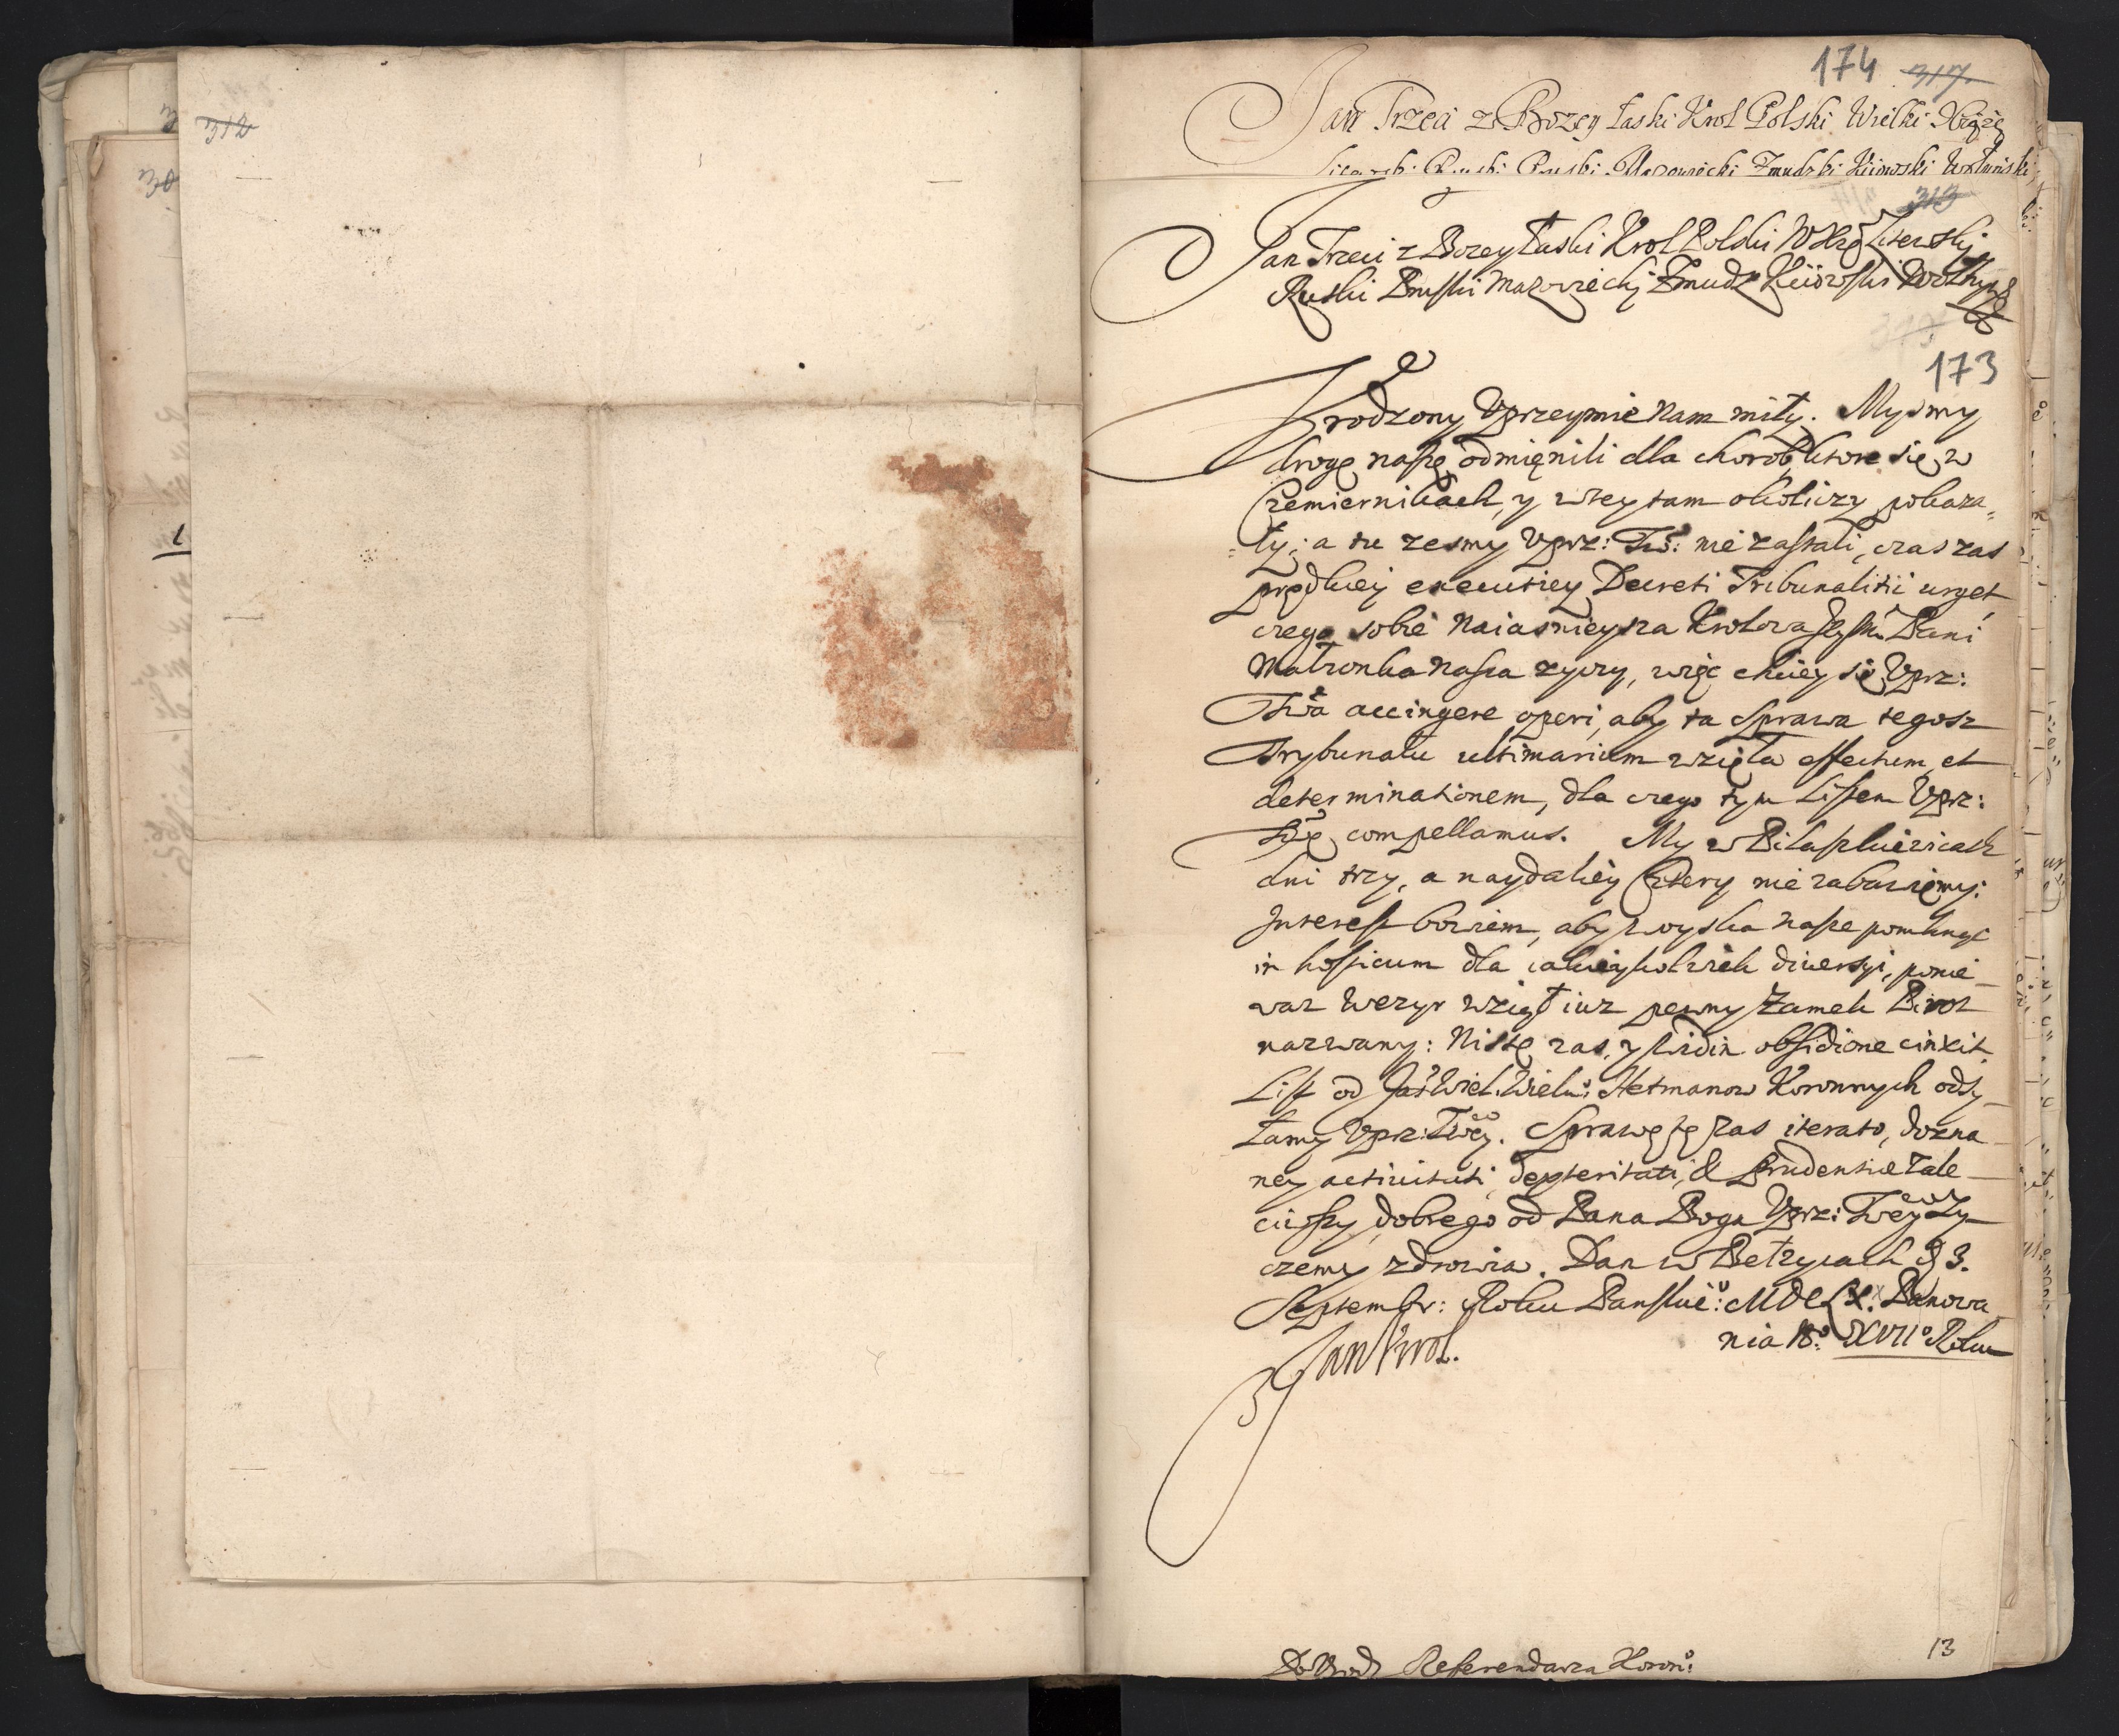 174 317.
Jan Trzeci z Bożey łaski Krol Polski Wielki Xiążę
Ruski Pruski Mazowiecki Żmudzki Kiiowski Wołyński
313
Jan Trzeci z Bozey Łaski Krol Polski W Xże Litewskj
Ruski Pruski Mazowieckj Żmudz Kiiowski Wołhyń
173
Urodzony Uprzeymie Nam miły. Mysmy
drogę naszę odmięnili dla chorob, ktore się w
Czemiernikach, y w tey tam okoliczy pokaza=
=ły; a tu zesmy Uprz: Tw: nie zastali, czas zas
prędkiey executiey Decreti Tribunalitii urget
czego sobie Naiasnieysza Krolowa Pani
Małzonka Nasza zyczy, więc chciey się Uprz:
Twa accingere operi, aby ta Sprawa tegosz
Trybunału ultimarium wzięła effectum, et
determinationem, dla czego tym Listem Uprz:
compellamus. My w Pilaszkowicach
dni trzy, a naydaliey Cztery nie zabawięmy:
Interest bowiem, aby woyska nasze pomknąć
in hosticum dla iakieykolwiek diwersyi, ponie_
waz Wezyr wziął iuz pewny Zamek Pirot
nazwany: Nissę zas, y Widin obsidione cinxit
List od Jas Wiel. Wielm: Hetmanow Koronnych odsy_
łamy Uprz: Twey. Sprawę tę zas iterato, dozna_
ney activitati, dexteritati, & Prudentiae Zale_
ciwszy, dobrego od Pana Boga Uprz: Twey Zy_
czemy zdrowia. Dan w Bełzycach D 3.
Septembr: Roku Panskie: MDCLXX. Panowa_
nia No: XVII° Roku
Jan Krol.
Do Urodz Referendarza Koron:
13